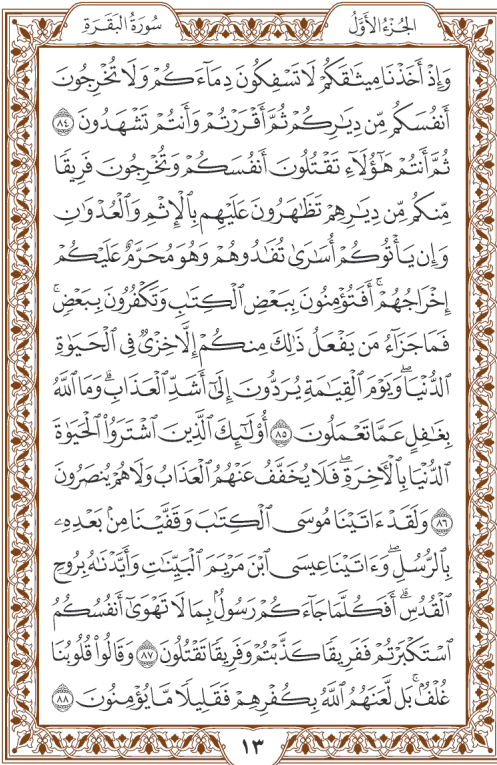 الجُزْءُ الأَوَّلُ
سُورَةُ البَقَرَةِ
وَإِذْ أَخَذْنَا مِيثَٰقَكُمْ لَا تَسْفِكُونَ دِمَآءَكُمْ وَلَا تُخْرِجُونَ
أَنفُسَكُم مِّن دِيَٰرِكُمْ ثُمَّ أَقْرَرْتُمْ وَأَنتُمْ تَشْهَدُونَ ٨٤
ثُمَّ أَنتُمْ هَٰٓؤُلَآءِ تَقْتُلُونَ أَنفُسَكُمْ وَتُخْرِجُونَ فَرِيقًا
مِّنكُم مِّن دِيَٰرِهِمْ تَظَٰهَرُونَ عَلَيْهِم بِٱلْإِثْمِ وَٱلْعُدْوَٰنِ
وَإِن يَأْتُوكُمْ أُسَٰرَىٰ تُفَٰدُوهُمْ وَهُوَ مُحَرَّمٌ عَلَيْكُمْ
إِخْرَاجُهُمْ ۚ أَفَتُؤْمِنُونَ بِبَعْضِ ٱلْكِتَٰبِ وَتَكْفُرُونَ بِبَعْضٍ ۚ
فَمَا جَزَآءُ مَن يَفْعَلُ ذَٰلِكَ مِنكُمْ إِلَّا خِزْىٌ فِى ٱلْحَيَوٰةِ
ٱلدُّنْيَا ۖ وَيَوْمَ ٱلْقِيَٰمَةِ يُرَدُّونَ إِلَىٰٓ أَشَدِّ ٱلْعَذَابِ ۗ وَمَا ٱللَّهُ
بِغَٰفِلٍ عَمَّا تَعْمَلُونَ ٨٥ أُو۟لَٰٓئِكَ ٱلَّذِينَ ٱشْتَرَوُا۟ ٱلْحَيَوٰةَ
ٱلدُّنْيَا بِٱلْـَٔاخِرَةِ ۖ فَلَا يُخَفَّفُ عَنْهُمُ ٱلْعَذَابُ وَلَا هُمْ يُنصَرُونَ
٨٦ وَلَقَدْ ءَاتَيْنَا مُوسَى ٱلْكِتَٰبَ وَقَفَّيْنَا مِنۢ بَعْدِهِۦ
بِٱلرُّسُلِ ۖ وَءَاتَيْنَا عِيسَى ٱبْنَ مَرْيَمَ ٱلْبَيِّنَٰتِ وَأَيَّدْنَٰهُ بِرُوحِ
ٱلْقُدُسِ ۗ أَفَكُلَّمَا جَآءَكُمْ رَسُولٌۢ بِمَا لَا تَهْوَىٰٓ أَنفُسُكُمُ
ٱسْتَكْبَرْتُمْ فَفَرِيقًا كَذَّبْتُمْ وَفَرِيقًا تَقْتُلُونَ ٨٧ وَقَالُوا۟ قُلُوبُنَا
غُلْفٌۢ ۚ بَل لَّعَنَهُمُ ٱللَّهُ بِكُفْرِهِمْ فَقَلِيلًا مَّا يُؤْمِنُونَ ٨٨
١٣